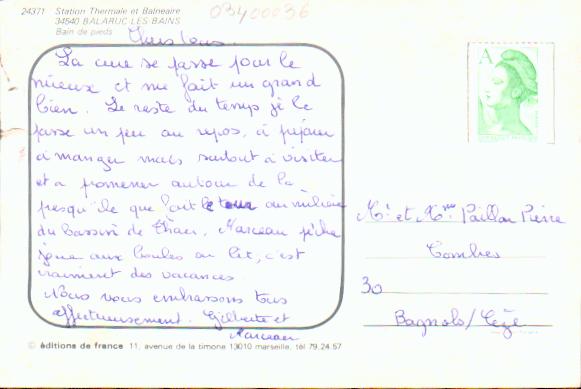 24371 Station Thermale et Balnéaire
34540 BALARUC-LES-BAINS
Bain de pieds
03400036
Chers tous.
La cure se passe pour le
mieux et me fait un grand
bien. Le reste du temps je le
passe un peu au repos, à préparer
à manger mais surtout à visiter
et à promener autour de la
presqu'île que fait le tour au milieu
du bassin de Thau. Marceau pêche
joue aux boules ou lit, c'est
vraiment des vacances.
Nous vous embrassons tous
affectueusement. Gilberte et
Marceau
A
Mr et Mme Paillon Pierre
Combes
30
Bagnols/Cèze
© éditions de france 11, avenue de la timone 13010 marseille. tél 79.24.57